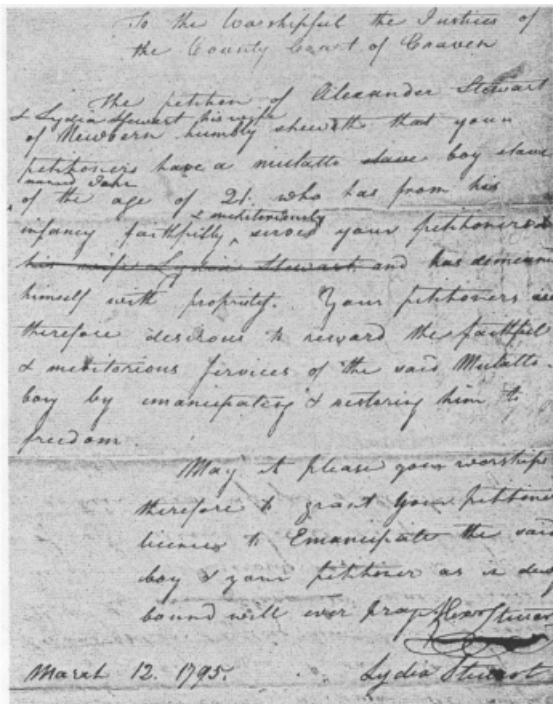 To the Worshipful the Justices of
the County Court of Craven
The petition of Alexander Stewart
& Lydia Stewart his wife
of Newbern humbly sheweth that your
petitioners have a mulatto slave boy slave
named
of the age of 21. who has from his
& meritoriously
infancy faithfully, serves your petitioners
his wife Lydia Stewart and has demeaned
himself with propriety. Your petitioners
therefore desirous to reward the faithful
& meritorious services of the said Mulatto
boy by emancipating & restoring him to
freedom.
May it please your worships
therefore to grant your petitioner
licence to Emancipate the said
boy & your petitioner as in duty
bound will ever pray Alexr Stewart
March 12. 1795. Lydia Stewart